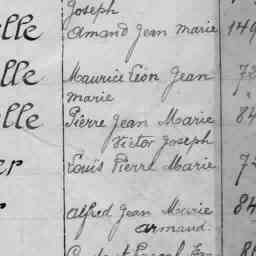 Joseph
elle Amand Jean Marie 149
elle Maurice Léon Jean 72
Marie
elle Pierre Jean Marie 84
Victor Joseph
er Louis Pierre Marie 72
r Alfred Jean Marie 84
Armand.